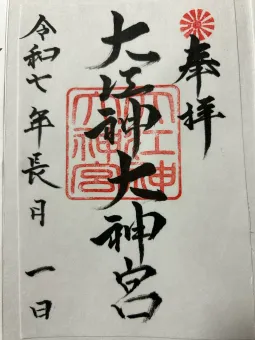 奉拝
大江神大神宮
大江神
大神宮
令和七年長月 一日